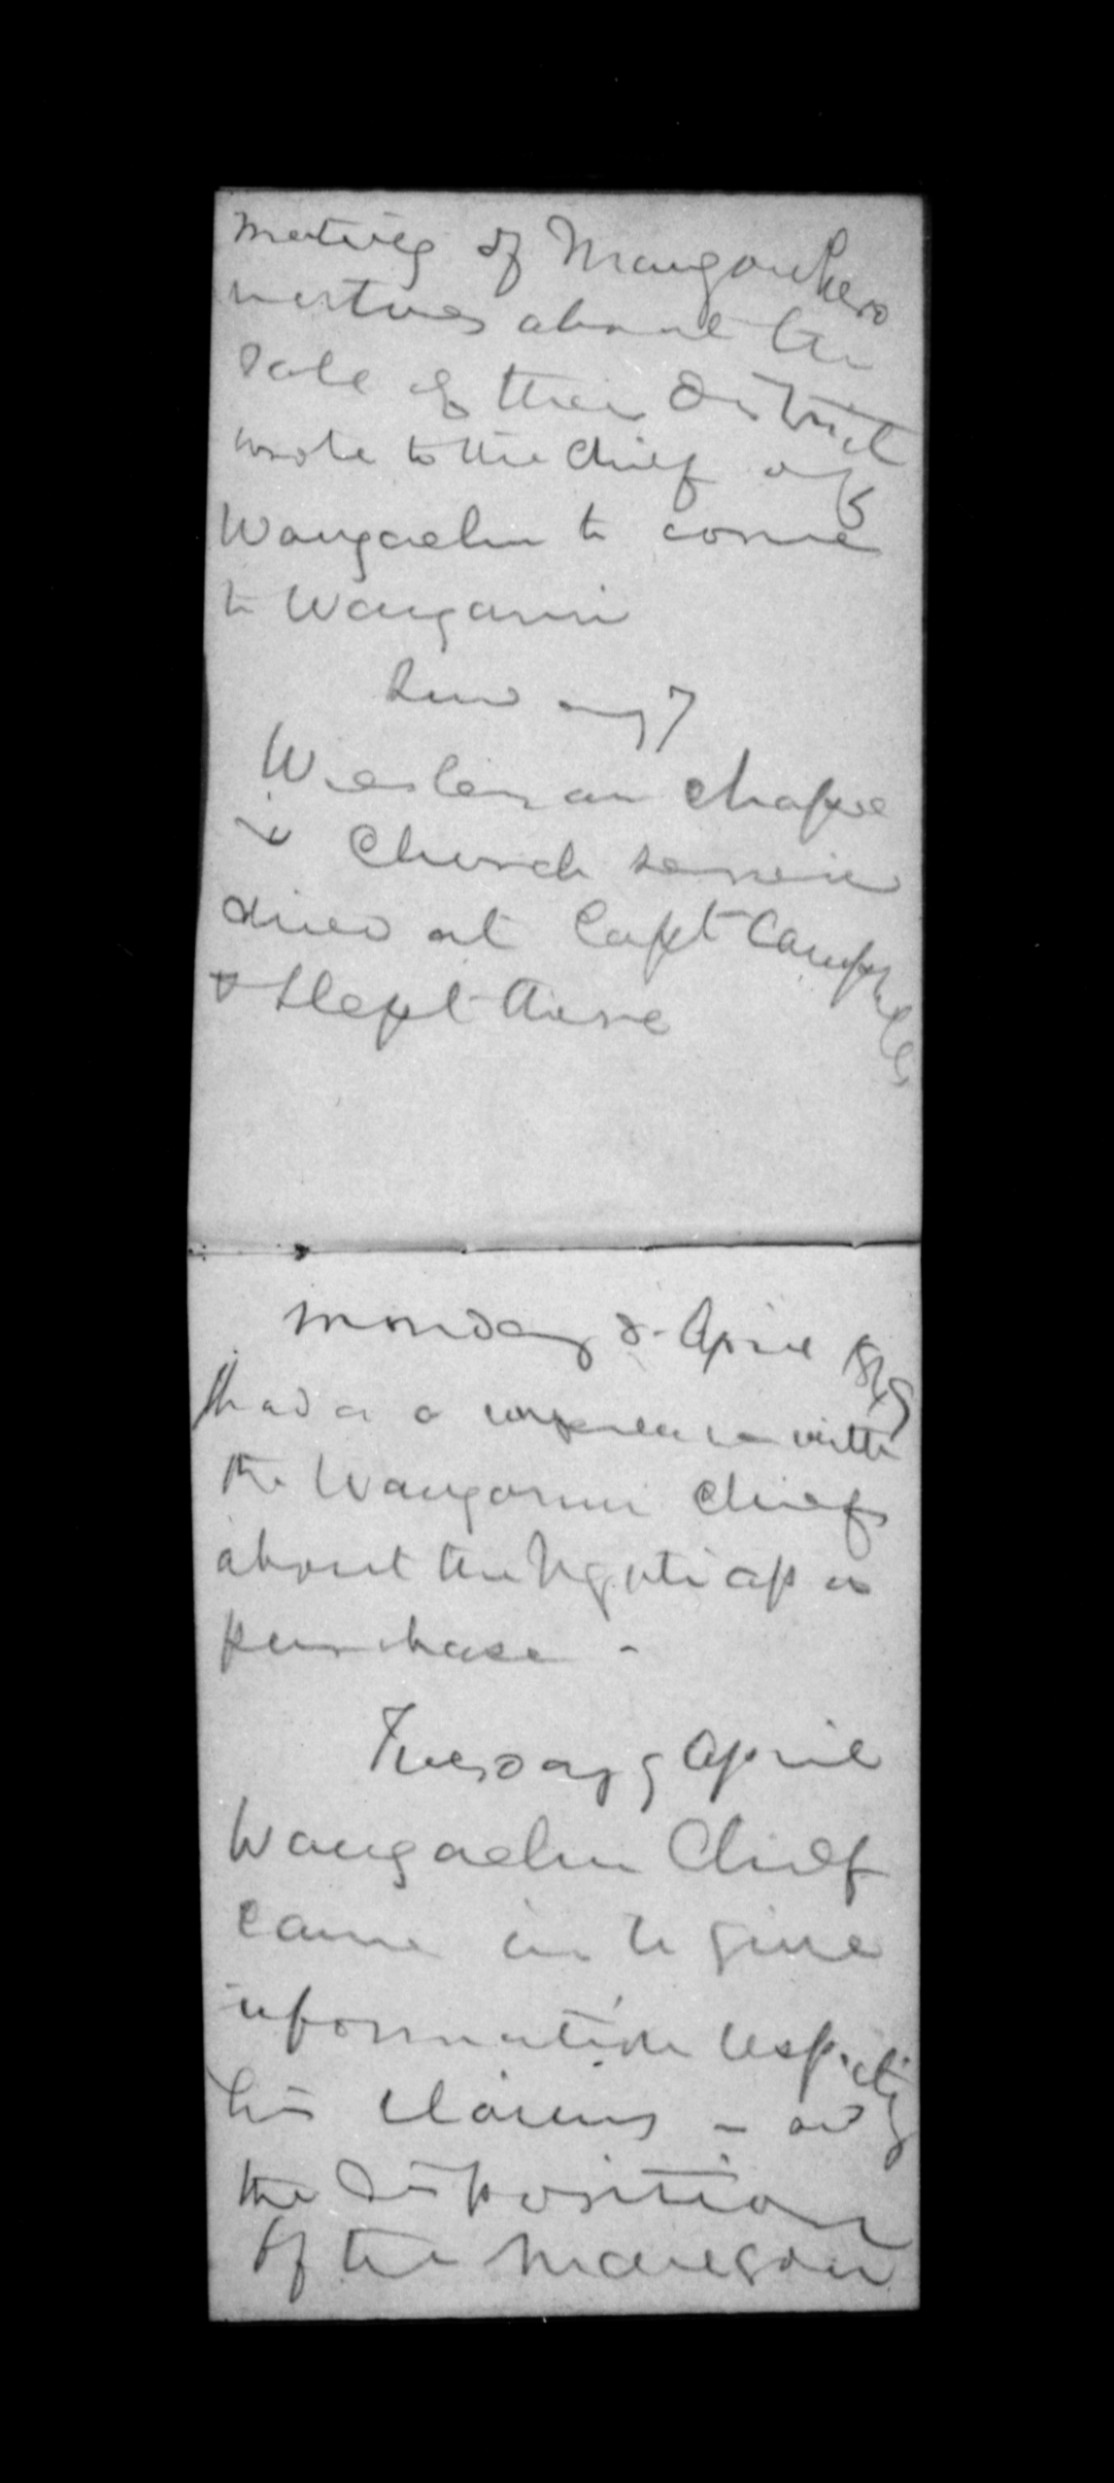 meeting of Mangowhero
natives about the
sale of their district
wrote to the Chief of
Wangaehu to come
to Wanganui
Sunday 7
Wesleyan Chapel
& Church service
dined at Capt Campbells
& slept there
Monday 8 April 1849
had a a conference with
the Wanganui Chiefs
about the Ngatiapa
purchase -
Tuesday 9 April
Wangaehu Chief
came in to give
information respecting
his claims - and
the disposition
of the Mangow